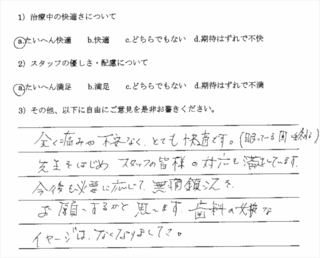 1) 治療中の快適さについて
a.たいへん快適 b.快適 c.どちらでもない d.期待はずれで不快
2) スタッフの優しさ・配慮について
a.たいへん満足 b.満足 c.どちらでもない d.期待はずれで不満
3) その他、以下に自由にご意見を是非お書きください。
全く痛みや不安なく、とても快適です。(眠っている間に終わる)
先生をはじめ スタッフの皆様の対応も満足しています。
今後も必要に応じて、無痛鎮沈を
お願いするかと思います。歯科の嫌な
イメージは、なくなりました。